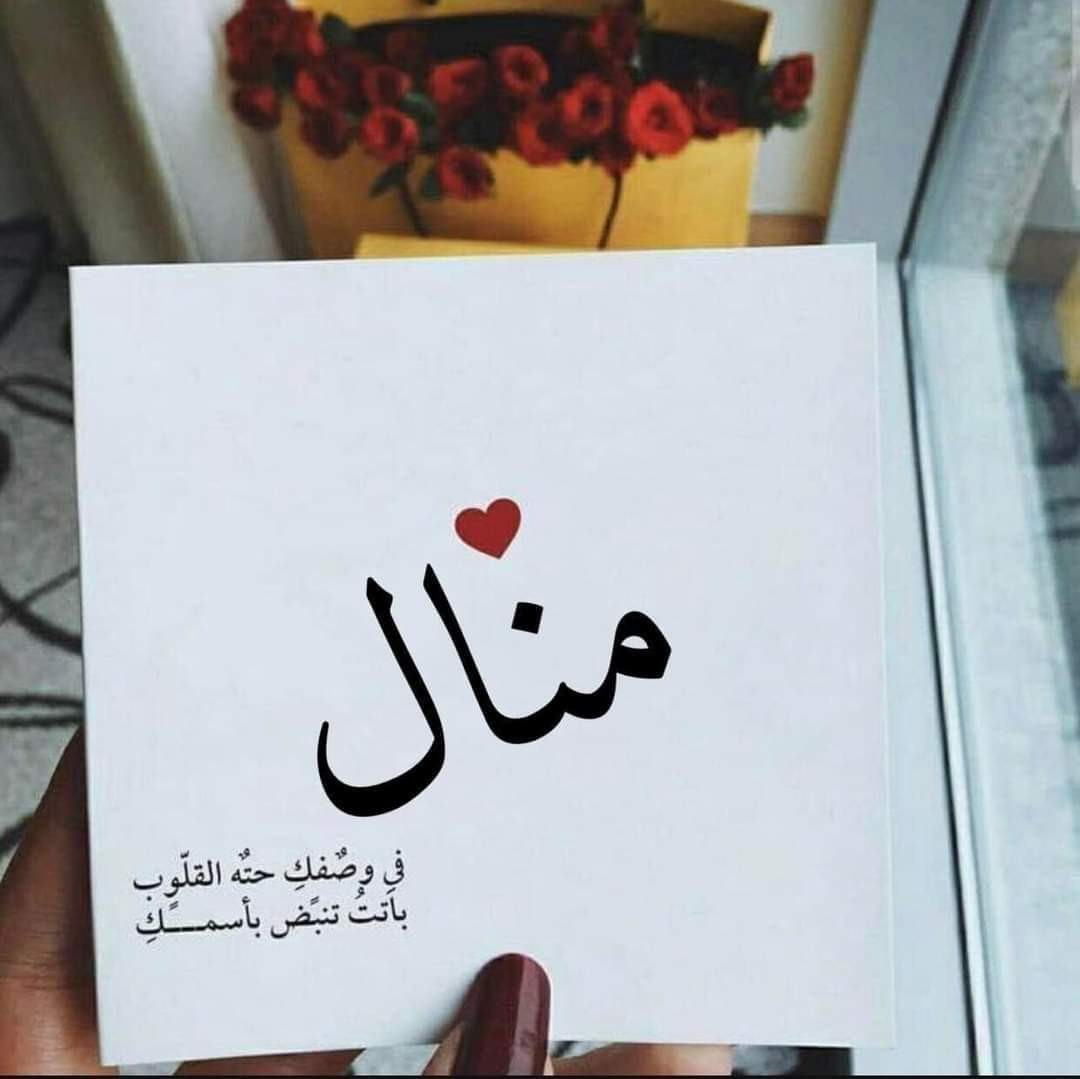 منال
في وصٌفكِ حتٌه القلّوٍب
باَتتُ تنبًض بأسمــــكٍِ